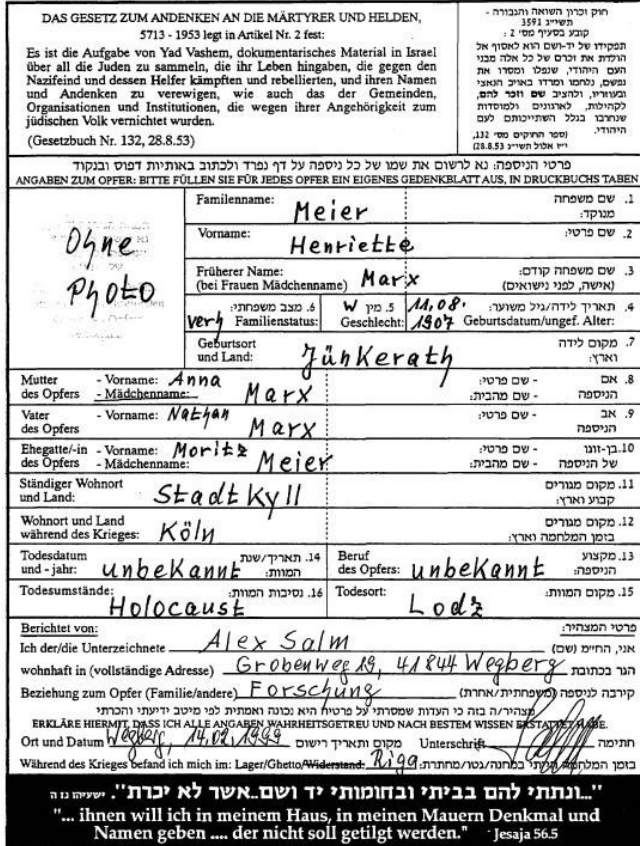 DAS GESETZ ZUM ANDENKEN AN DIE MÄRTYRER UND HELDEN,
5713 - 1953 legt in Artikel Nr. 2 fest:
Es ist die Aufgabe von Yad Vashem, dokumentarisches Material in Israel
über all die Juden zu sammeln, die ihr Leben hingaben, die gegen den
Nazifeind und dessen Helfer kämpften und rebellierten, und ihren Namen
und Andenken zu verewigen, wie auch das der Gemeinden,
Organisationen und Institutionen, die wegen ihrer Angehörigkeit zum
jüdischen Volk vernichtet wurden.
(Gesetzbuch Nr. 132, 28.8.53)
חוק זכרון השואה והגבורה -
תשי"ג 3591
קובע בסעיף מס' 2 :
תפקידו של יד-ושם הוא לאסוף אל
המולדת את זכרם של כל אלה מבני
העם היהודי, שנפלו ומסרו את
נפשם, נלחמו ומרדו באויב הנאצי
ובעוזריו, ולהציב שם וזכר להם,
לקהילות, לארגונים ולמוסדות
שנחרבו בגלל השתייכותם לעם
היהודי.
(ספר החוקים מס' 132,
י"ז אלול תשי"ג 28.8.53)
פרטי הניספה: נא לרשום את שמו של כל ניספה על דף נפרד ולכתוב באותיות דפוס ובנקוד
ANGABEN ZUM OPFER: BITTE FÜLLEN SIE FÜR JEDES OPFER EIN EIGENES GEDENKBLATT AUS, IN DRUCKBUCHS TABEN
Ohne
Photo
Familienname: Meier 1. שם משפחה מנוקד:
Vorname: Henriette 2. שם פרטי:
Früherer Name: (bei Frauen Mädchenname) Marx 3. שם משפחה קודם: (אישה, לפני נישואים)
verh 6. מצב משפחתי: Familienstatus: W 5. מין Geschlecht: 11.08. 1907 4. תאריך לידה/גיל משוער: Geburtsdatum/ungef. Alter:
Geburtsort und Land: Jünkerath 7. מקום לידה וארץ:
Mutter des Opfers - Vorname: Anna - Mädchenname: Marx 8. אם הניספה - שם פרטי: - שם מהבית:
Vater des Opfers - Vorname: Nathan Marx 9. אב הניספה - שם פרטי:
Ehegatte/-in des Opfers - Vorname: Moritz - Mädchenname: Meier 10. בן-זוגו של הניספה - שם פרטי: - שם מהבית:
Ständiger Wohnort und Land: Stadtkyll 11. מקום מגורים קבוע וארץ:
Wohnort und Land während des Krieges: Köln 12. מקום מגורים בזמן המלחמה וארץ:
Todesdatum und - jahr: unbekannt 14. תאריך/שנת המוות: Beruf des Opfers: unbekannt 13. מקצוע הניספה:
Todesumstände: Holocaust 16. נסיבות המוות: Todesort: Lodz 15. מקום המוות:
Berichtet von: פרטי המצהיר:
Ich der/die Unterzeichnete Alex Salm אני, החי"מ (שם)
wohnhaft in (vollständige Adresse) Grobenweg 19, 41844 Wegberg הגר בכתובת
Beziehung zum Opfer (Familie/andere) Forschung קירבה לניספה (משפחתית/אחרת)
מצהיר/ה בזה כי העדות שמסרתי על פרטיה היא נכונה ואמתית לפי מיטב ידיעתי והכרתי
ERKLÄRE HIERMIT, DASS ICH ALLE ANGABEN WAHRHEITSGETREU UND NACH BESTEM WISSEN ERSTATTET HABE.
Ort und Datum Wegberg, 14.02.1999 מקום ותאריך רישום Unterschrift חתימה
Während des Krieges befand ich mich im: Lager/Ghetto/Widerstand: Riga בזמן המלחמה הייתי במחנה/גטו/מחתרת:
"...ונתתי להם בביתי ובחומותי יד ושם..אשר לא יכרת". ישעיהו נו ה
"... ihnen will ich in meinem Haus, in meinen Mauern Denkmal und
Namen geben .... der nicht soll getilgt werden." Jesaja 56.5